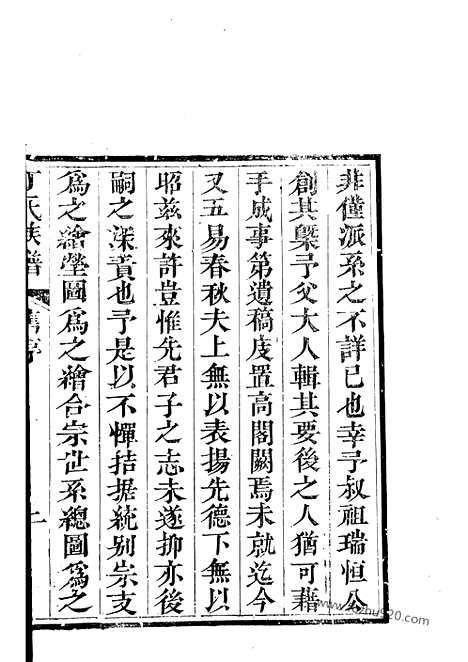 非僅派系之不詳已也幸予叔祖瑞恒公
創其槩予父大人輯其要後之人猶可藉
手成事第遺稿庋置高閣闕焉未就迄今
又五易春秋夫上無以表揚先德下無以
昭茲來許豈惟先君子之志未遂抑亦後
嗣之深責也予是以不憚拮据統别崇支
爲之繪塋圖爲之繪合宗世系總圖爲之
丁氏族譜 舊序 二
www.zohu920.com